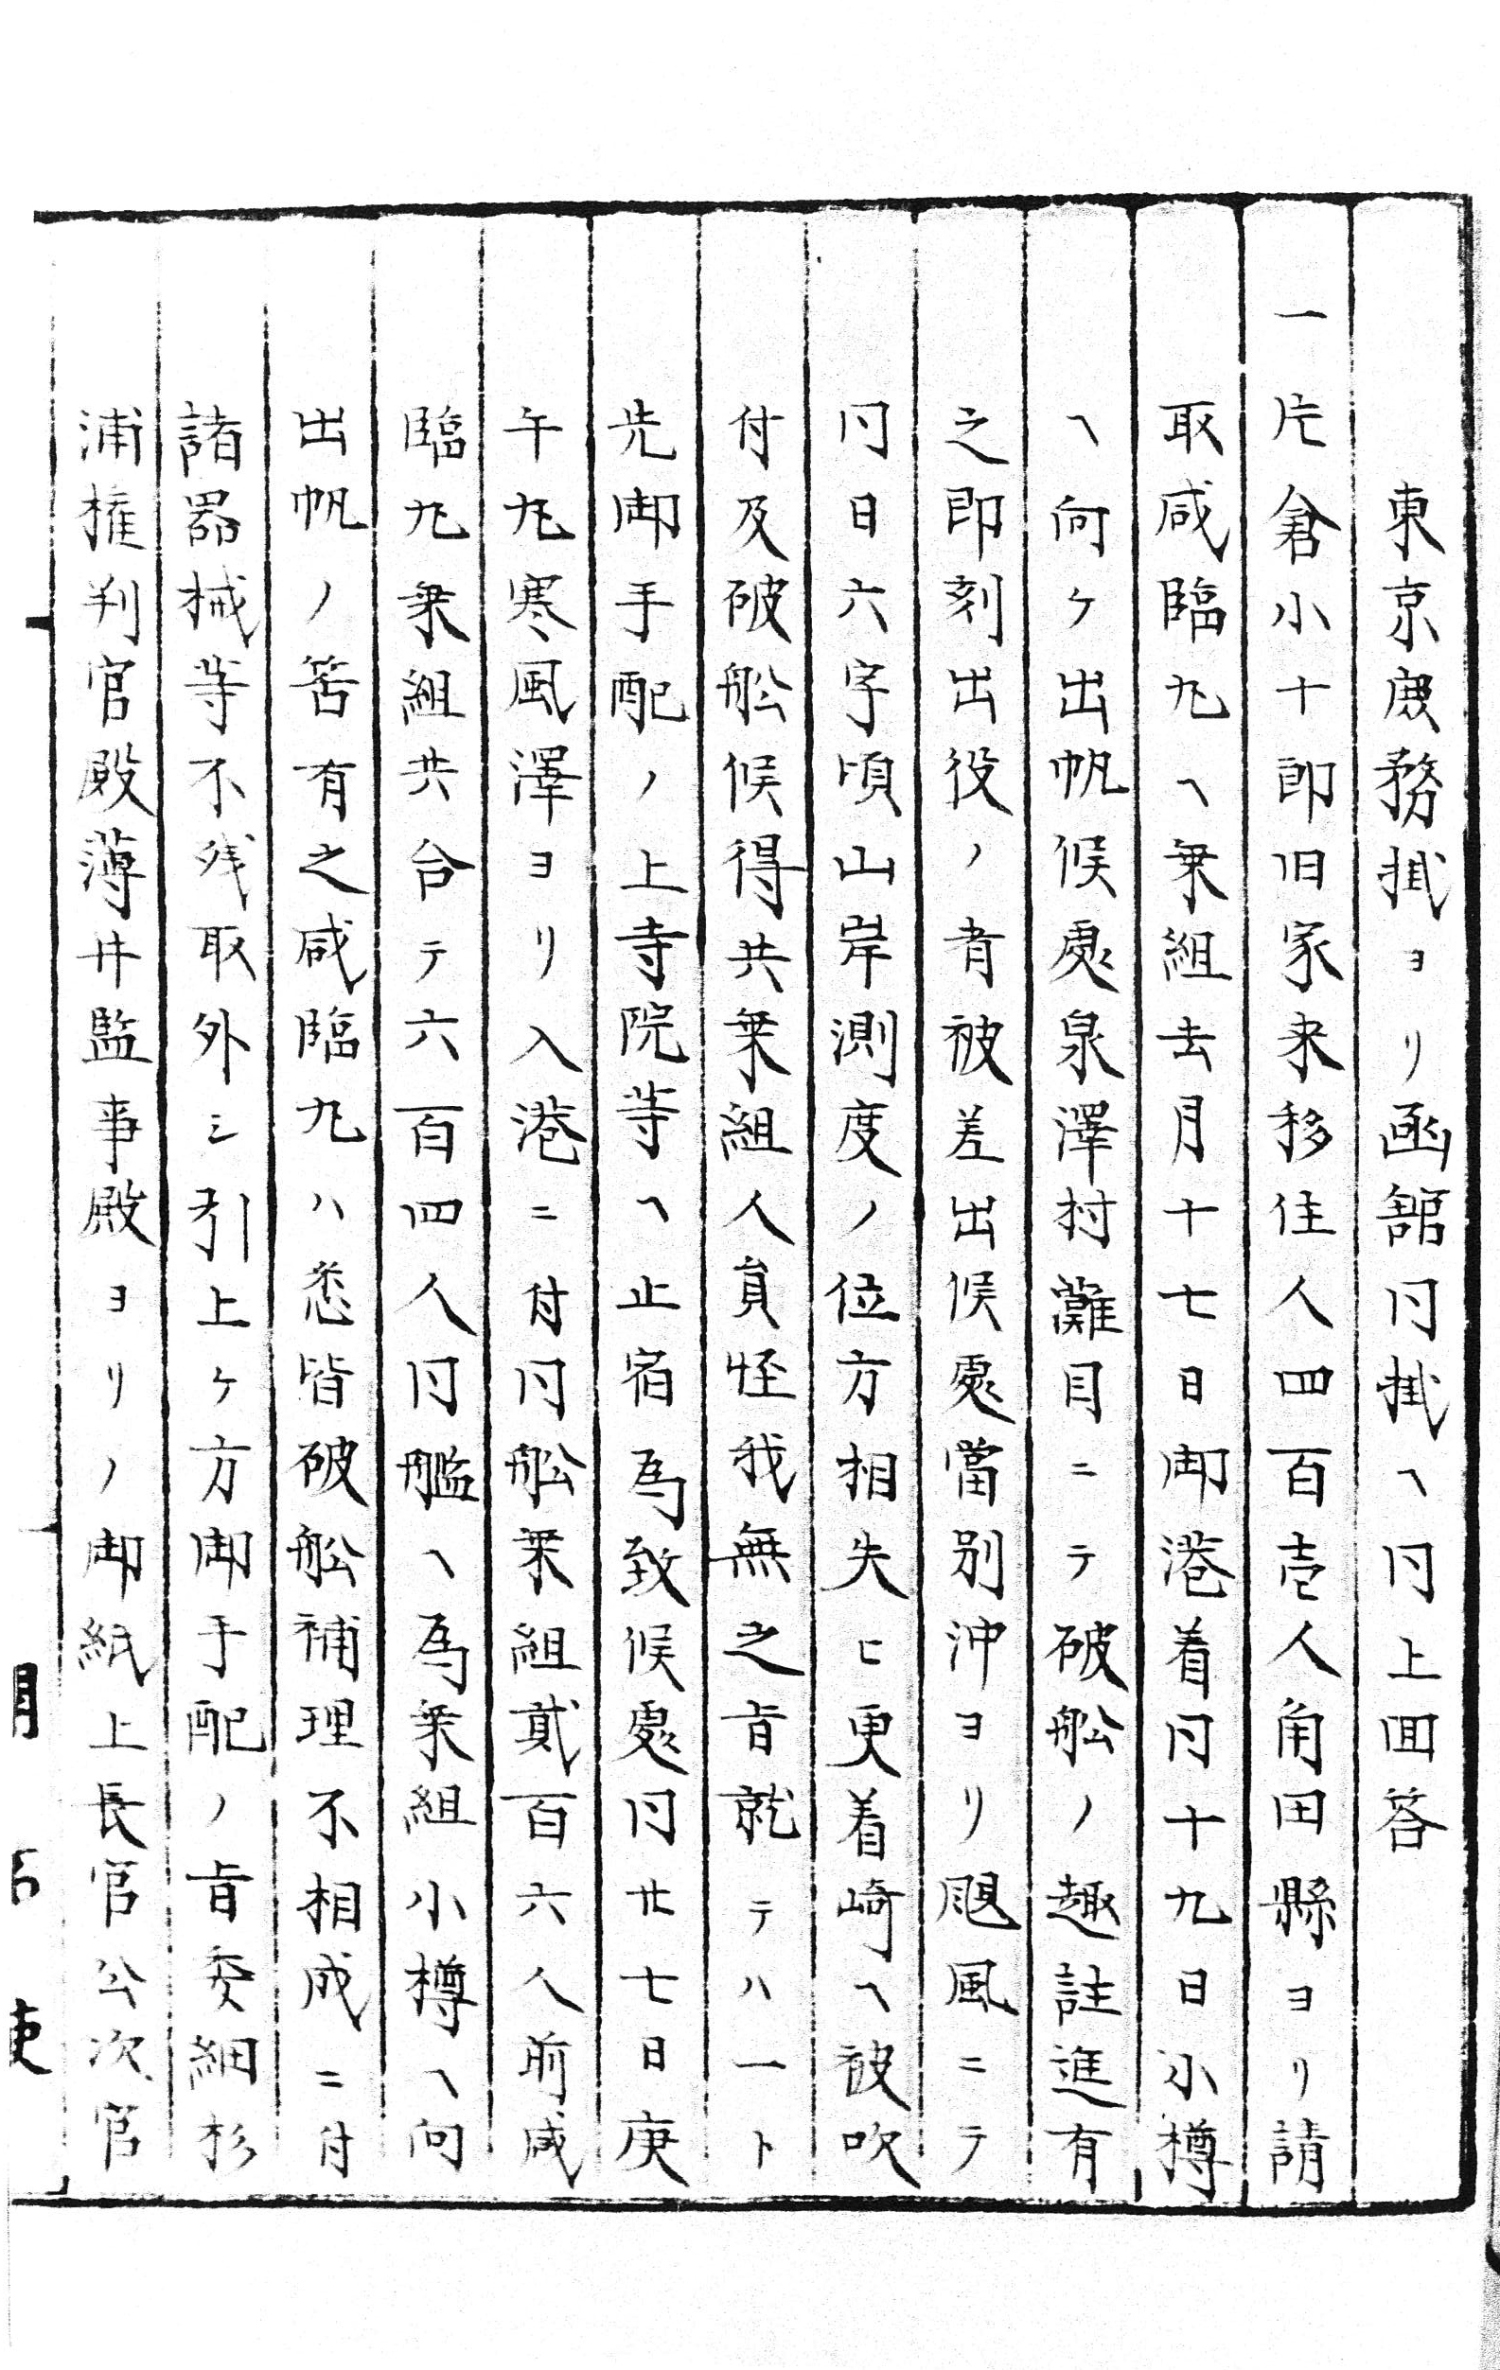 東京庶務掛ヨリ函舘同掛ヘ同上回答
一片倉小十郎旧家来移住人四百壱人角田縣ヨリ請
取咸臨丸ヘ乗組去月十七日御港着同十九日小樽
ヘ向ケ出帆候處泉澤村灘目ニテ破舩ノ趣註進有
之即刻出役ノ者被差出候處當別沖ヨリ颶風ニテ
同日六字頃山岸測度ノ位方相失ヒ更着崎ヘ被吹
付及破舩候得共乗組人員怪我無之旨就テハ一ト
先御手配ノ上寺院等ヘ止宿為致候處同廿七日庚
午丸寒風澤ヨリ入港ニ付同舩乗組貳百六人前咸
臨丸乗組共合テ六百四人同艦ヘ為乗組小樽ヘ向
出帆ノ筈有之咸臨丸ハ悉皆破舩補理不相成ニ付
諸器械等不残取外シ引上ケ方御手配ノ旨委細杉
浦権判官殿薄井監事殿ヨリノ御紙上長官公次官